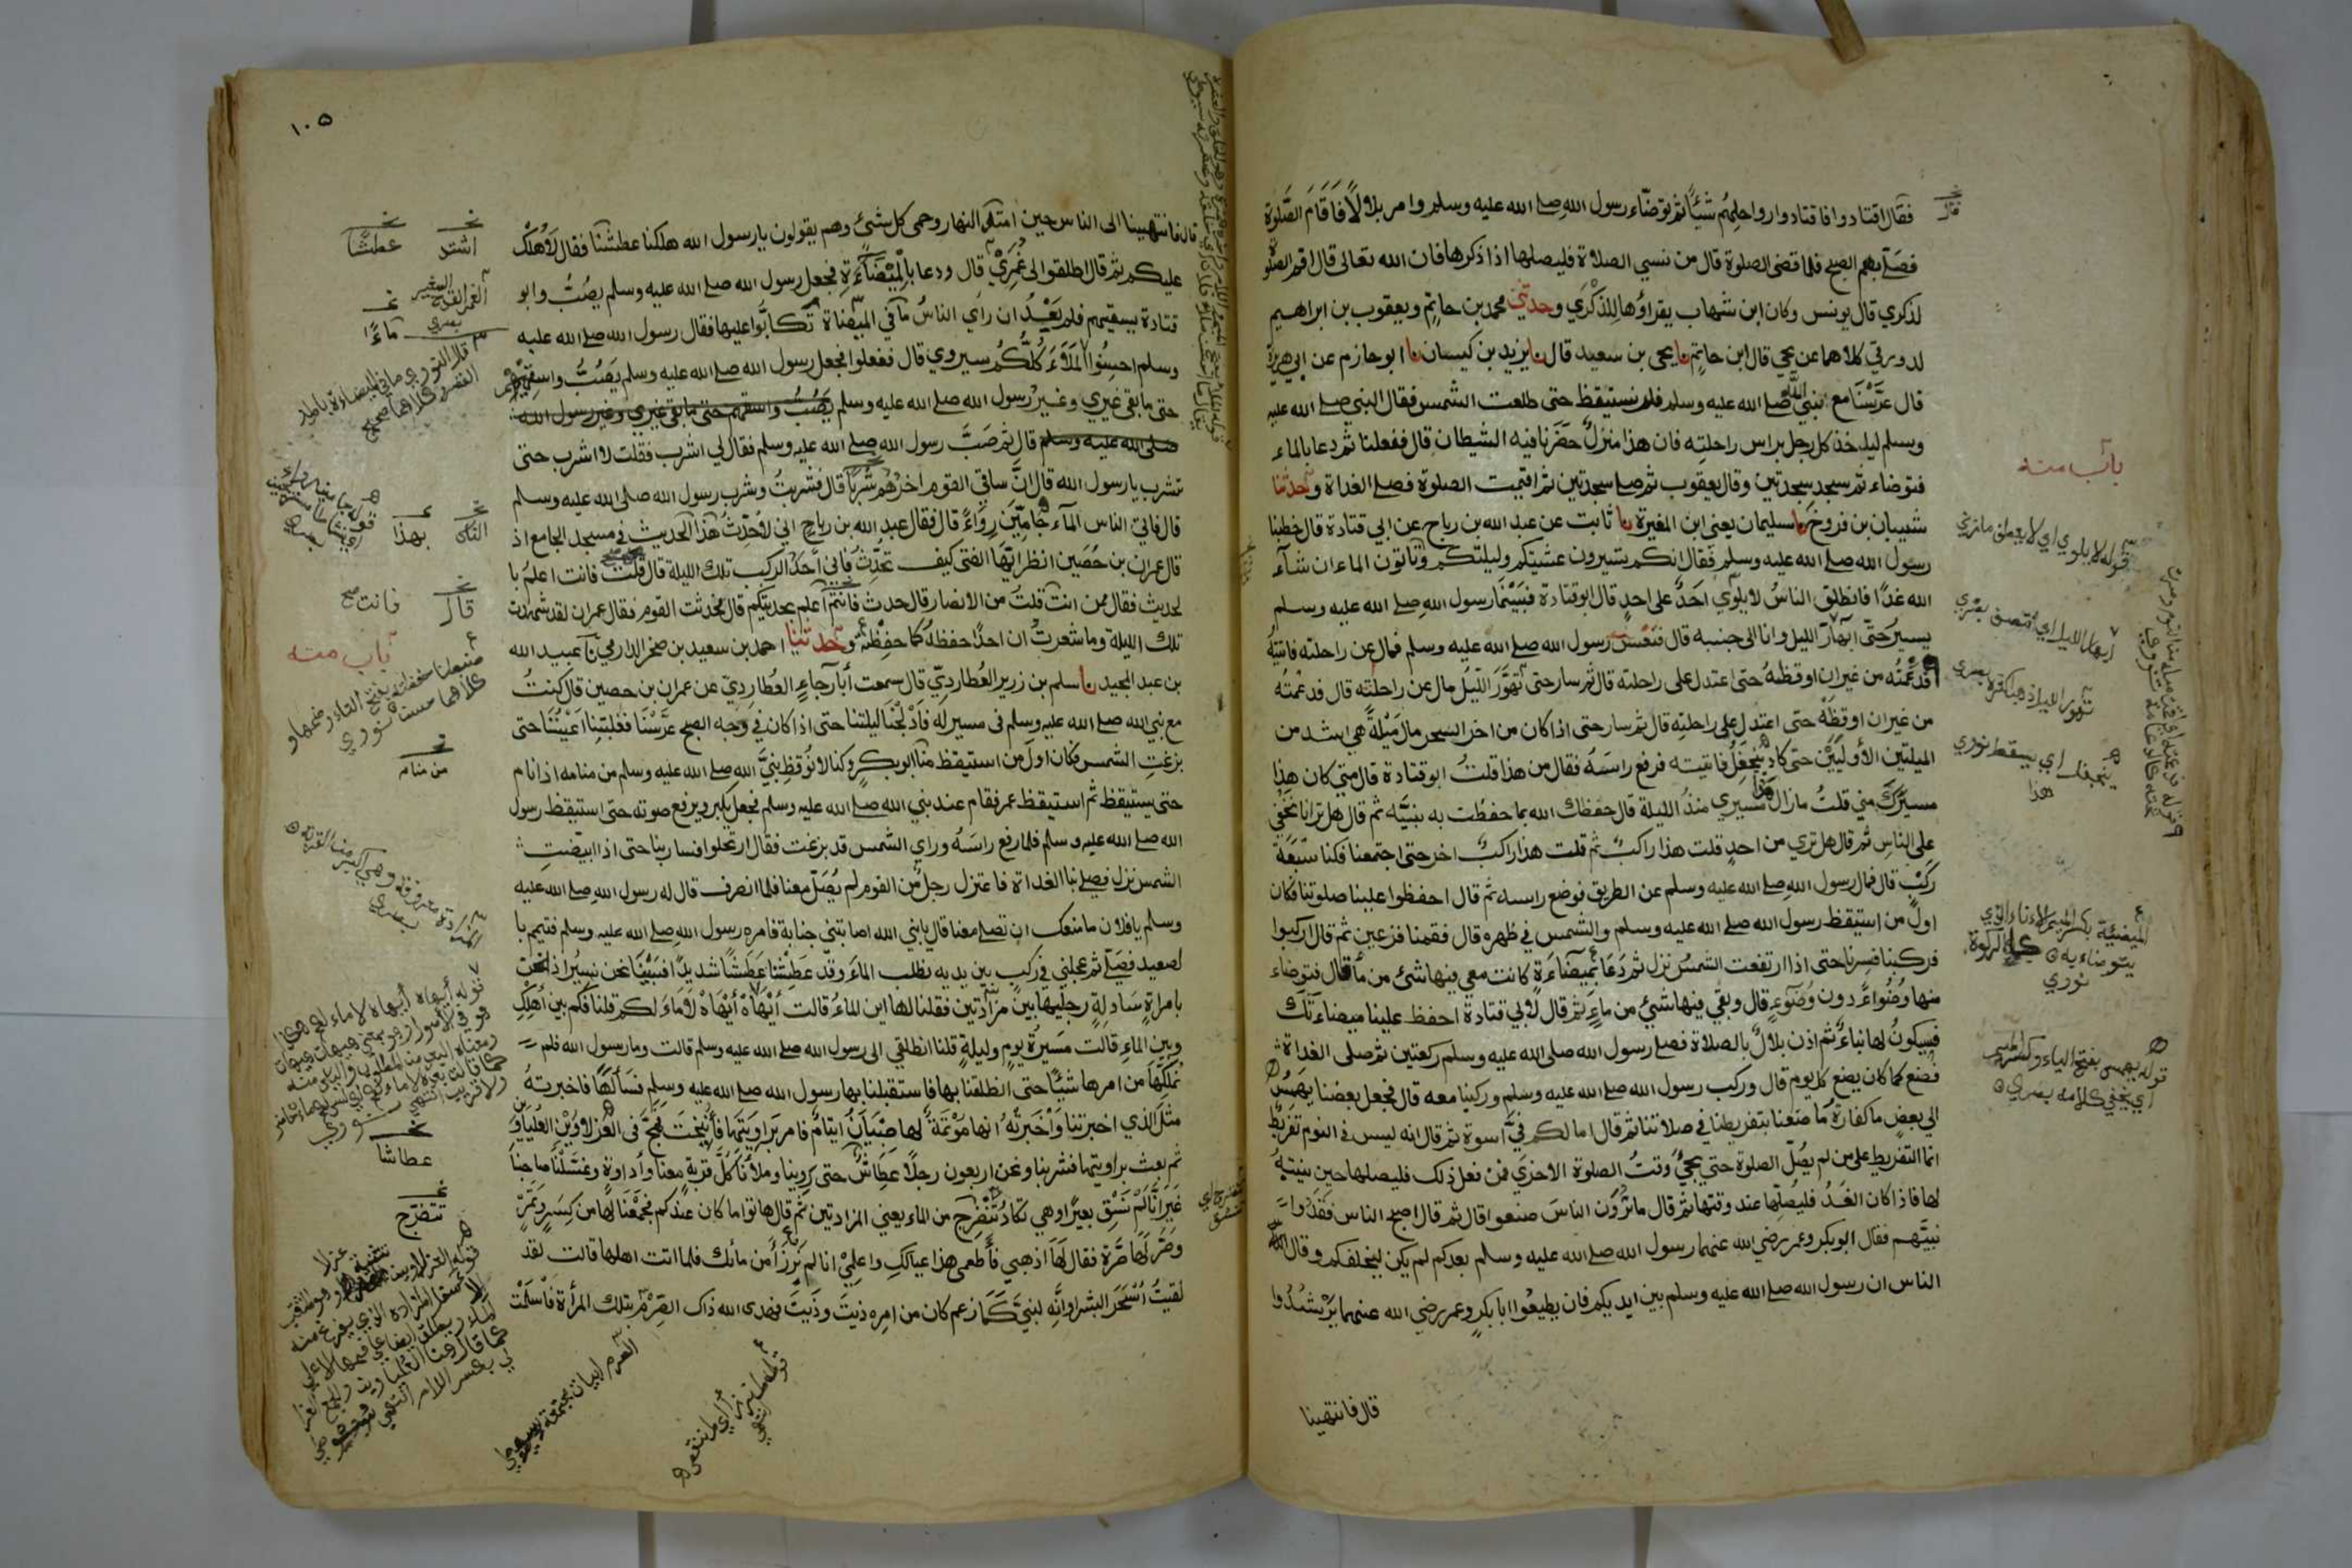 فقال اقتادوا فاقتادوا رواحلهم شيئًا ثم توضاء رسول الله صلے الله عليه وسلم وامر بلالًا فَاَقَامَ الصَّلوة
فصَلّے بهم الصبح فلما قضى الصلوة قال من نسي الصلاة فليصلها اذا ذكرها فان الله تعالى قال اقم الصلوة
لذكري قال يونس وكان ابن شهاب يقراؤها لِلذِّكْرَي وحدثني محمد بن حاتم ويعقوب بن ابراهيم
لدورقي كلاهما عن يحيى قال ابن حاتم نا يحيى بن سعيد قال نا يزيد بن كيسان نا ابو حازم عن ابي هريرة
قال عَرَّسْنَا مع نبي الله صلے الله عليه وسلم فلم نستيقظ حتى طلعت الشمس فقال النبي صلے الله عليه
وسلم لياخذ كل رجل براس راحلته فان هذا منزلٌ حَضَرَنا فيه الشيطان قال ففعلنا ثم دعا بالماء
فتوضاء ثم سجد سجدتين وقال يعقوب ثم صلے سجدتين ثم اقيمت الصلوة فصلے الغداة وحدثنا
شيبان بن فروخ نا سليمان يعني ابن المغيرة نا ثابت عن عبد الله بن رباح عن ابي قتادة قال خطبنا
رسول الله صلے الله عليه وسلم فقال انكم تسيرون عشيتكم وليلتكم وتاتون الماء ان شآء
الله غدًا فانطلق الناسُ لا يلوي احَدٌ على احدٍ قال ابو قتادة فبَيْنَمَا رسول الله صلے الله عليه وسلم
يسيرُ حتى ابْهَارَّ الليل وانا الى جنبه قال فنَعَسَ رسول الله صلے الله عليه وسلم فمال عن راحلته فاتيتُهُ
فَدَعَمْتُه من غير ان اوقظهُ حتى اعتدل على راحلته قال ثم سار حتى تَهَوَّرَ الليلُ مال عن راحلته قال فدعمته
من غير ان اوقظَهُ حتى اعتدل على راحلته قال ثم سار حتى اذا كان من اخر السحر مال مَيْلةً هي اشد من
الميلتين الأوليَيْنِ حتى كاد يَنْجَفِلُ فاتيته فدعمته فرفع راسَهُ فقال من هذا قلتُ ابو قتادة قال متى كان هذا
مسيرَكَ مني قلتُ مازال هذا مسيري منذُ الليلة قال حفظك الله بما حفظت به نبيَّه ثم قال هل ترانا نَخْفَي
على الناسِ ثم قال هل تري من احدٍ قلت هذا راكبٌ ثم قلت هذا راكبٌ اخر حتى اجتمعنا فكنا سَبْعَةَ
ركْبٍ قال فمال رسول الله صلے الله عليه وسلم عن الطريق فوضع راسه ثم قال احفظوا علينا صلوتنا فكان
اولَ من استيقظ رسول الله صلے الله عليه وسلم والشمس في ظهره قال فقمنا فزعين ثم قال اركبوا
فركبنا فسرنا حتى اذا ارتفعت الشمسُ نزل ثم دَعَا بميضَآءَةٍ كانت معي فيها شئ من مآء قال فتوضاء
منها وُضُواءً دون وُضُوءٍ قال وبقي فيها شيئ من ماءٍ ثم قال لأبي قتادة احفظ علينا ميضاءتك
فسيكونُ لها نباءٌ ثم اذن بلالٌ بالصلاة فصلے رسول الله صلى الله عليه وسلم ركعتين ثم صلى الغداة
فصنع كما كان يصنع كل يوم قال وركب رسول الله صلے الله عليه وسلم وركبنا معه قال فجعل بعضنا يهمِسُ
الي بعضٍ ما كفارةُ ما صَنعنا بتفريطنا في صلاتنا ثم قال اما لكم فيَّ اسوة ثم قال انه ليس في النوم تفريط
انما التفريط على من لم يُصَلِّ الصلوة حتي يجيَّ وقتُ الصلوة الاخرَي فمن فعل ذلك فليصلها حين ينتبهُ
لها فاذا كان الغَدُ فليُصَلِّها عند وقتها ثم قال ما تَرَوْن الناسَ صنعوا قال ثم قال اصبح الناس فقَدُوا
نبيَّهم فقال ابو بكر وعمر رضي الله عنهما رسول الله صلے الله عليه وسلم بعدكم لم يكن ليخلفكم وقال
الناس ان رسول الله صلے الله عليه وسلم بين ايديكم فان يطيعُوا ابا بكرٍ وعمر رضي الله عنهما يَرْشُدُوا
قال فانتهينا
قال
باب منه
قوله لا يلوي اي لا يعطف نووي
ابهار الليل اي انتصف بصري
تهور الليل اي ذهب اكثره بصري
ينجفل اي يسقط نووي
هذا
الميضئة بكسر الميم الاناء الذي
يتوضاء به كالركوة
نووي
قوله يهمس بفتح الياء وكسر الميم
اي يخفي كلامه بصري
١٠٥
قال فانتهينا الى الناس حين امتدّ النهار وحمى كل شئ وهم يقولون يا رسول الله هلكنا عطشنا فقال لا هُلْكَ
عليكم ثم قال اطلقوا لى غُمَرِيْ قال ودعا بالمِيْضَآءَةِ فجعل رسول الله صلے الله عليه وسلم يصُبُّ وابو
قتادة يسقيهم فلم يَعْدُ ان رأى الناسُ ما في الميضاة تَكَابُّوا عليها فقال رسول الله صلے الله عليه
وسلم احسِنُوا المَلأَ كُلُّكُم سيروي قال ففعلوا فجعل رسول الله صلے الله عليه وسلم يصُبُّ واسقيهم
حتى ما بقي غيري وغيرُ رسول الله صلے الله عليه وسلم يَصُبُّ واسقيهم حتى ما بقى غيري وغير رسول الله
صلے الله عليه وسلم قال ثم صَبَّ رسول الله صلے الله عليه وسلم فقال لي اشرب فقلت لا اشرب حتى
تشرب يا رسول الله قال انَّ ساقي القوم اخرُهُم شُرْبًا قال فشربتُ وشرب رسول الله صلى الله عليه وسلم
قال فاتى الناس المآءَ جَامِّيْنَ رِوَاءً قال فقال عبد الله بن رباح اني لأُحَدِّثُ هذا الحديث في مسجد الجامع اذ
قال عمران بن حُصَين انظر ايَّهَا الفتى كيف تحدِّثُ فَاني أَحَدُ الركب تلك الليلة قال قلت فانت اعلمُ با
لحديث فقال ممن انت قلتُ من الانصار قال حدث فانتم اعلم بحديثكم قال فحدثت القوم فقال عمران لقد شهدت
تلك الليلة وما شعرتُ ان احدًا حفظهُ كما حفِظْتَهُ وحدثنا احمد بن سعيد بن صخر الدارمي نا عبيد الله
بن عبد المجيد نا سلم بن زرير العُطارديّ قال سمعت أبا رَجاءٍ العُطارديّ عن عمران بن حصين قال كنتُ
مع نبي الله صلے الله عليه وسلم في مسير له فَاَدْلَجْنَا ليلتنا حتى اذا كان في وَجه الصبح عَرَّسْنَا فغلبتنا اَعْيُنُنَا حتى
بزغتِ الشمس فكان اولَ من استيقظ منا ابو بكرٍ وكنا لا نُوقظ نبيَّ الله صلے الله عليه وسلم من منامه اذا نام
حتى يستيقظ ثم استيقظ عمر فقام عند نبي الله صلے الله عليه وسلم فجعل يكبر ويرفع صوته حتى استيقظ رسول
الله صلے الله عليه وسلم فلما رفع راسَهُ وراي الشمس قد بزغت فقال ارتحلوا فسار بنا حتى اذا ابيضت
الشمس نزل فصلے بنا الغداة فاعتزل رجلٌ من القوم لم يُصَلّ معنا فلما انصرف قال له رسول الله صلے الله عليه
وسلم يا فلان ما منعك ان تصلے معنا قال يا نبي الله اصابتني جنابة فامره رسول الله صلے الله عليه وسلم فتيمم با
لصعيد فصَلّے ثم عجلني في ركب بين يديه نطلب الماءَ وقد عَطِشْنا عَطَشًا شديدًا فبَيْنَا نحن نسيرُ اذا نحن
بامراةٍ سَادلةٍ رجليها بين مزادتين فقلنا لها اين الماءُ قالت أيْهَاهْ أيْهَاهْ لا ماءَ لكم قلنا فكم بين أهلِكِ
وبين الماءِ قالت مسيرةُ يومٍ وليلةٍ قلنا انطلقي الى رسول الله صلے الله عليه وسلم قالت وما رسول الله فلم
نُمَلِّكْهَا من امرها شيئًا حتى انطلقنا بها فاستقبلنا بها رسول الله صلے الله عليه وسلم فسَألَهَا فاخبرتهُ
مثلَ الذي اخبرتنا وَاخْبَرتْهُ انها مؤتمَةٌ لها صِبْيَانٌ ايتامٌ فامر بَراويتها فأُنِيْخَتْ فمجَّ في العَزْلاوَيْنِ العُلْيَاوَيْنِ
ثم بعث براويتها فشربنا ونحن اربعون رجلًا عطاشٌ حتى رَوِينا وملأنا كلَّ قربةٍ معنا واداوةٍ وغسَّلْنَا صاحبنا
غيرَ انَّا لم نَسْقِ بعيرًا وهي تكادُ تَنْضَرِجُ من الماء يعني المزادتين ثم قال هاتوا ما كان عندكم فجمَعْنَا لها من كِسَرٍ وتمْرٍ
وصَرَّ لها صُرّة فقال لها اذهبي فأطعمى هذا عيالكِ واعلمِيْ انا لم نَرْزَأْ من مائك فلما اتت اهلها قالت لقد
لقيتُ أسْحَرَ البشر او انَّه لنبيٌّ كَمَا زعم كان من امره ذَيْتَ وذَيْتَ فهدى الله ذاك الصِّرْمَ بتلك المرأة فَاسلَمَتْ
اشتد
عطشًا
الغمر القدح الصغير
بصري
ماءً
الناس
بهذا
قال
فانت صح
باب منه
من منام
عطاشا
تتضرج